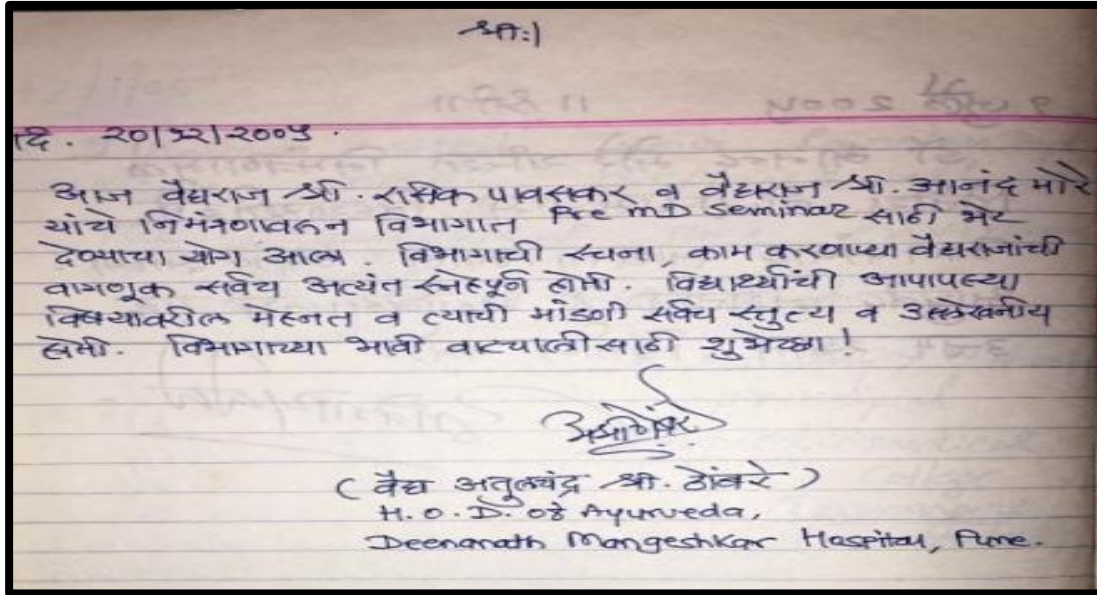 श्रीः।
दि. २०/१२/२००५.
आज वैद्यराज श्री. रसिक पावसकर व वैद्यराज श्री. आनंद मोरे
यांचे निमंत्रणावरून विभागात Pre MD Seminar साठी भेट
देण्याचा योग आला. विभागाची रचना, काम करणाऱ्या वैद्यराजांची
वागणूक सर्वच अत्यंत स्नेहपूर्ण होती. विद्यार्थ्यांची आपापल्या
विषयावरील मेहनत व त्याची मांडणी सर्वच स्तुत्य व उल्लेखनीय
होती. विभागाच्या भावी वाटचालीसाठी शुभेच्छा!
(वैद्य अतुलचंद्र श्री. ठोंबरे)
H.O.D. of Ayurveda,
Deenanath Mangeshkar Hospital, Pune.